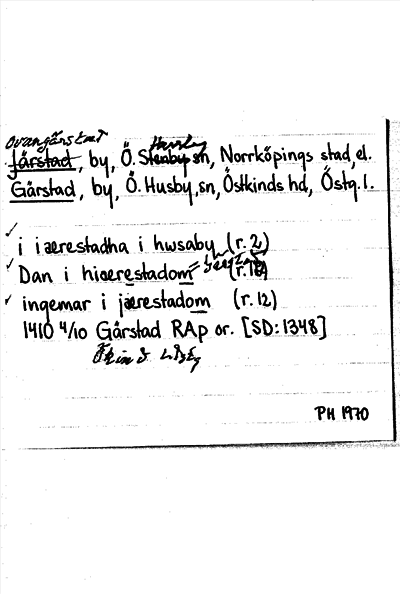 Järstad, by, Ö. Stenby sn, Norrköpings stad, el.
Gårstad, by, Ö. Husby, sn, Östkinds hd, Östg. l.
i iærestadha i hwsaby (r. 2)
Dan i hiærestadom (r. 12)
ingemar i jærestadom (r. 12)
1410 4/10 Gårstad RAp or. [SD: 1348]
PH 1970